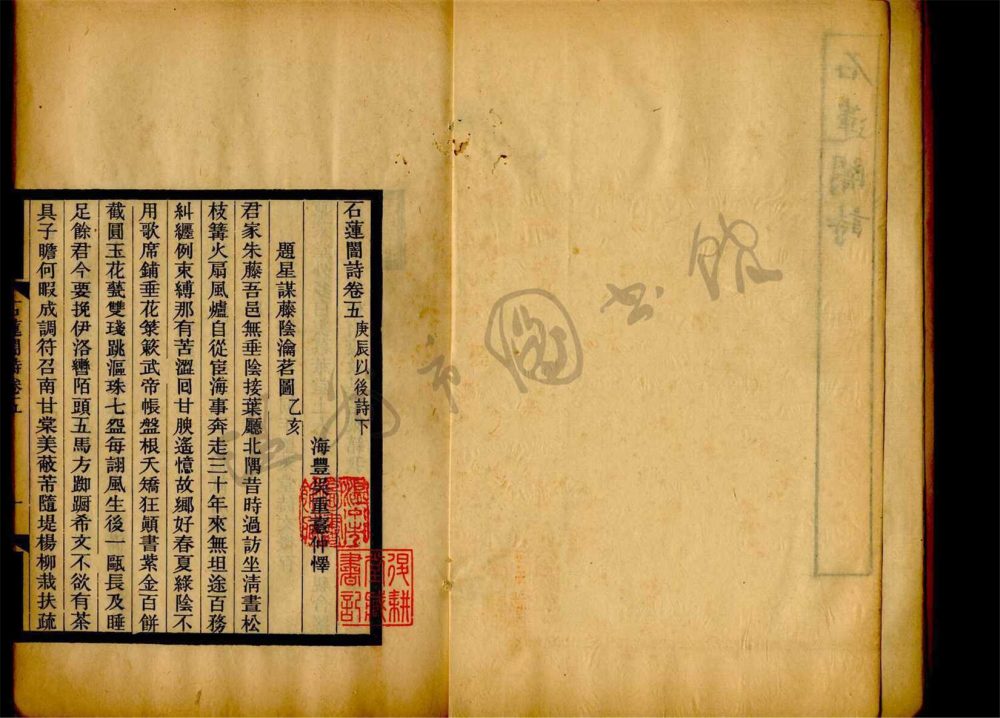 石蓮闇詩卷五 庚辰以後詩下
海豐吳重憙仲懌
題星謀藤陰瀹茗圖 乙亥
君家朱藤吾邑無垂陰接葉廳北隅昔時過訪坐清晝松
枝篝火扇風爐自從宦海事奔走三十年來無坦途百務
糾纏例束縛那有苦澀回甘腴遙憶故鄉好春夏綠陰不
用歌席鋪垂花簌簌武帝帳盤根夭矯狂顛書紫金百餅
截圓玉花甆雙琖跳漚珠七盌每詡風生後一甌長及睡
足餘君今要挽伊洛轡陌頭五馬方踟躕希文不欲有茶
具子瞻何暇成調符召南甘棠美蔽芾隨堤楊柳栽扶疏
石蓮闇詩卷五
一
石蓮闇詩
市圖書館